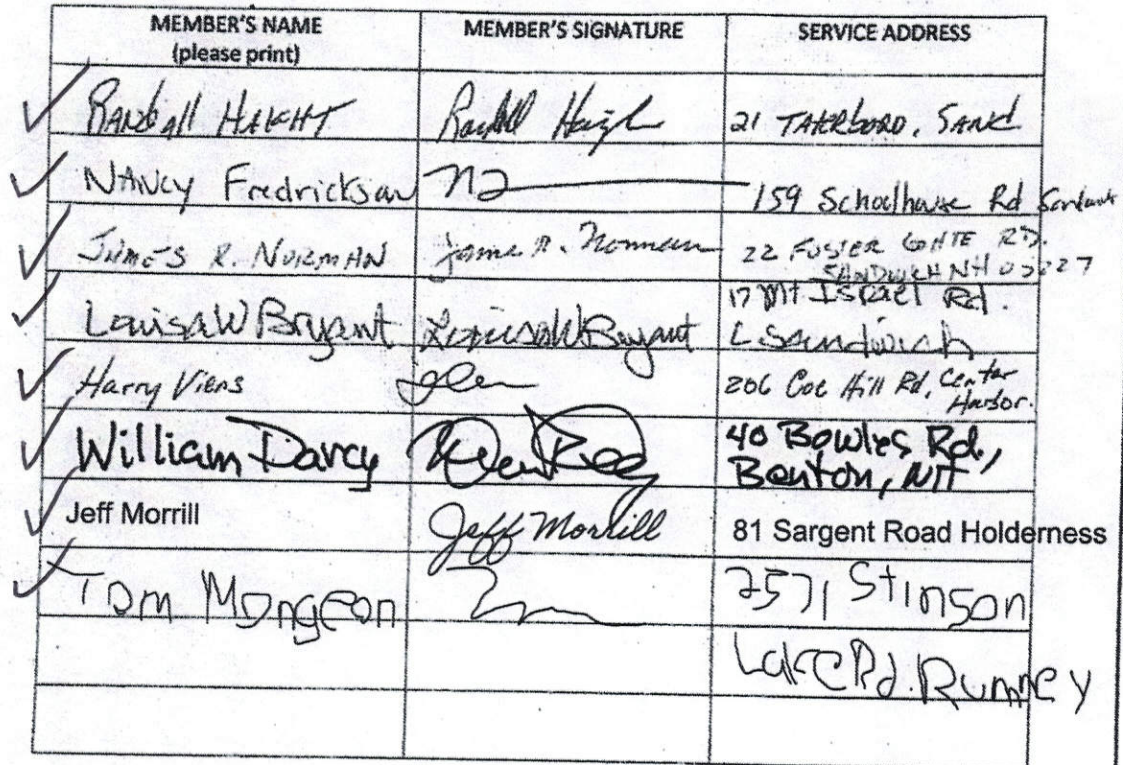 MEMBER'S NAME MEMBER'S SIGNATURE SERVICE ADDRESS
(please print)
Randall Haight Randall Haigh 21 Sand
Nancy Fredrickson 159 Schoolhouse Rd
James R. Norman James R. Norman 22 Foster Gate Rd.
Sandwich NH 03227
17 Mt Israel Rd.
Louisa W Bryant Louisa W Bryant C Sandwich
Harry Viens 206 Coe Hill Rd, Center
Harbor.
William Darcy 40 Bowles Rd.,
Benton, NH
Jeff Morrill Jeff Morrill 81 Sargent Road Holderness
Tom Mongeon 2571 Stinson
Lake Rd. Rumney